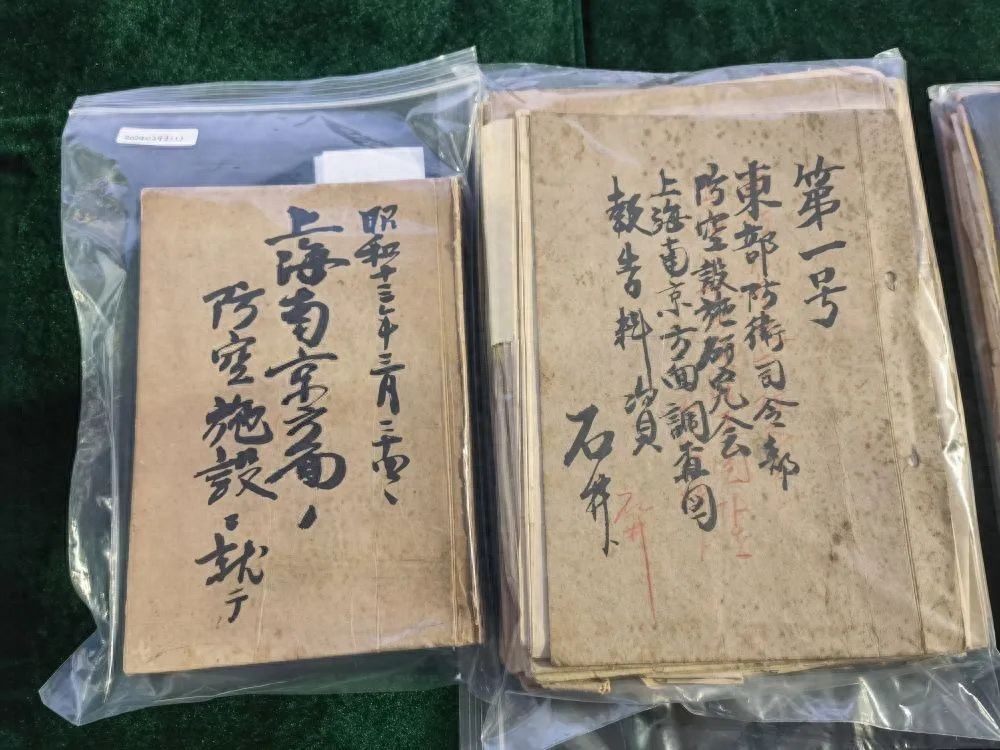 昭和十三年三月
上海南京方面ノ
防空施設ニ就テ
第一号
東部防衛司令部
防空設施研究会
上海南京方面調査図
報告料資
石井
石井